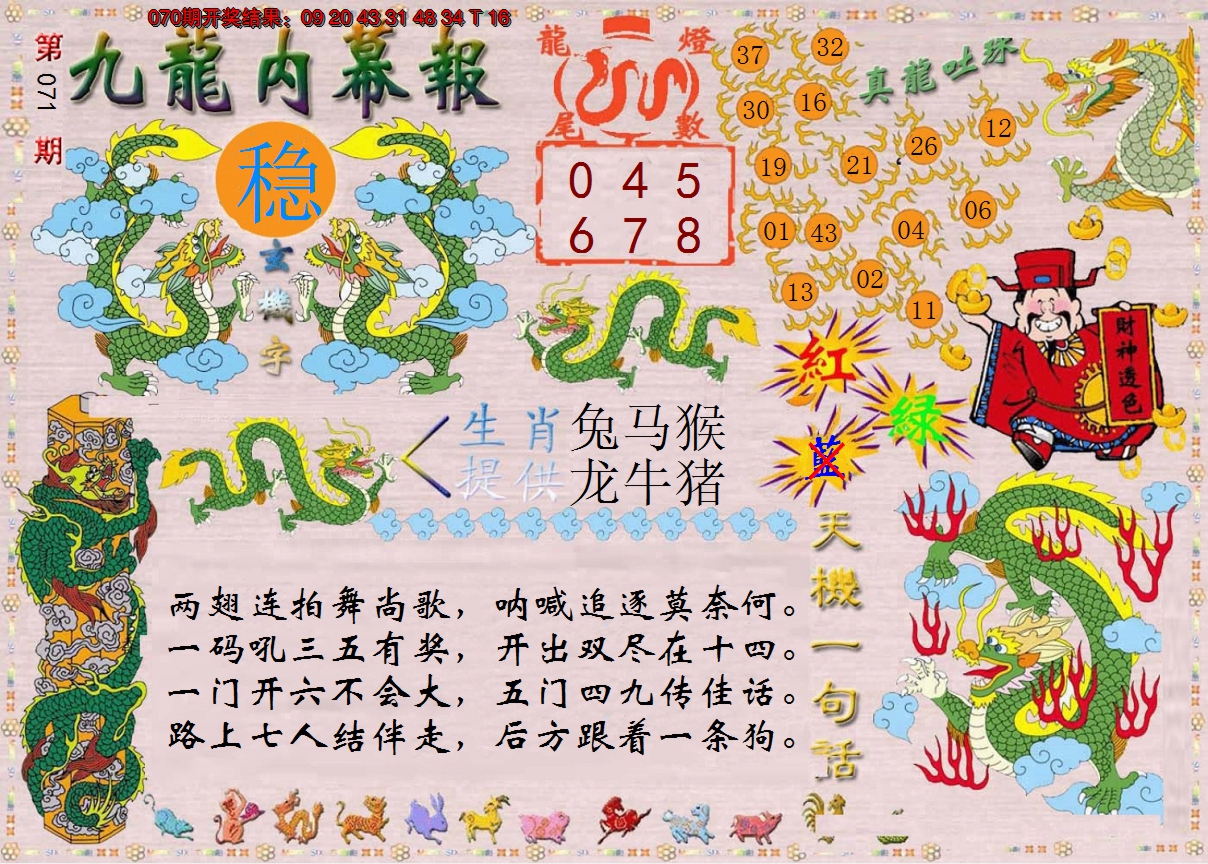 070期开奖结果：09 20 43 31 48 34 T 16
第071期
九龍内幕報
稳
玄機字
龍燈尾數
0 4 5
6 7 8
真龍吐珠
37 32
30 16
19 21 26 12
01 43 04 06
13 02 11
財神透色
紅
綠
藍
生肖 兔马猴
提供 龙牛猪
两翅连拍舞尚歌，呐喊追逐莫奈何。
一码吼三五有奖，开出双尽在十四。
一门开六不会大，五门四九传佳话。
路上七人结伴走，后方跟着一条狗。
天機一句话